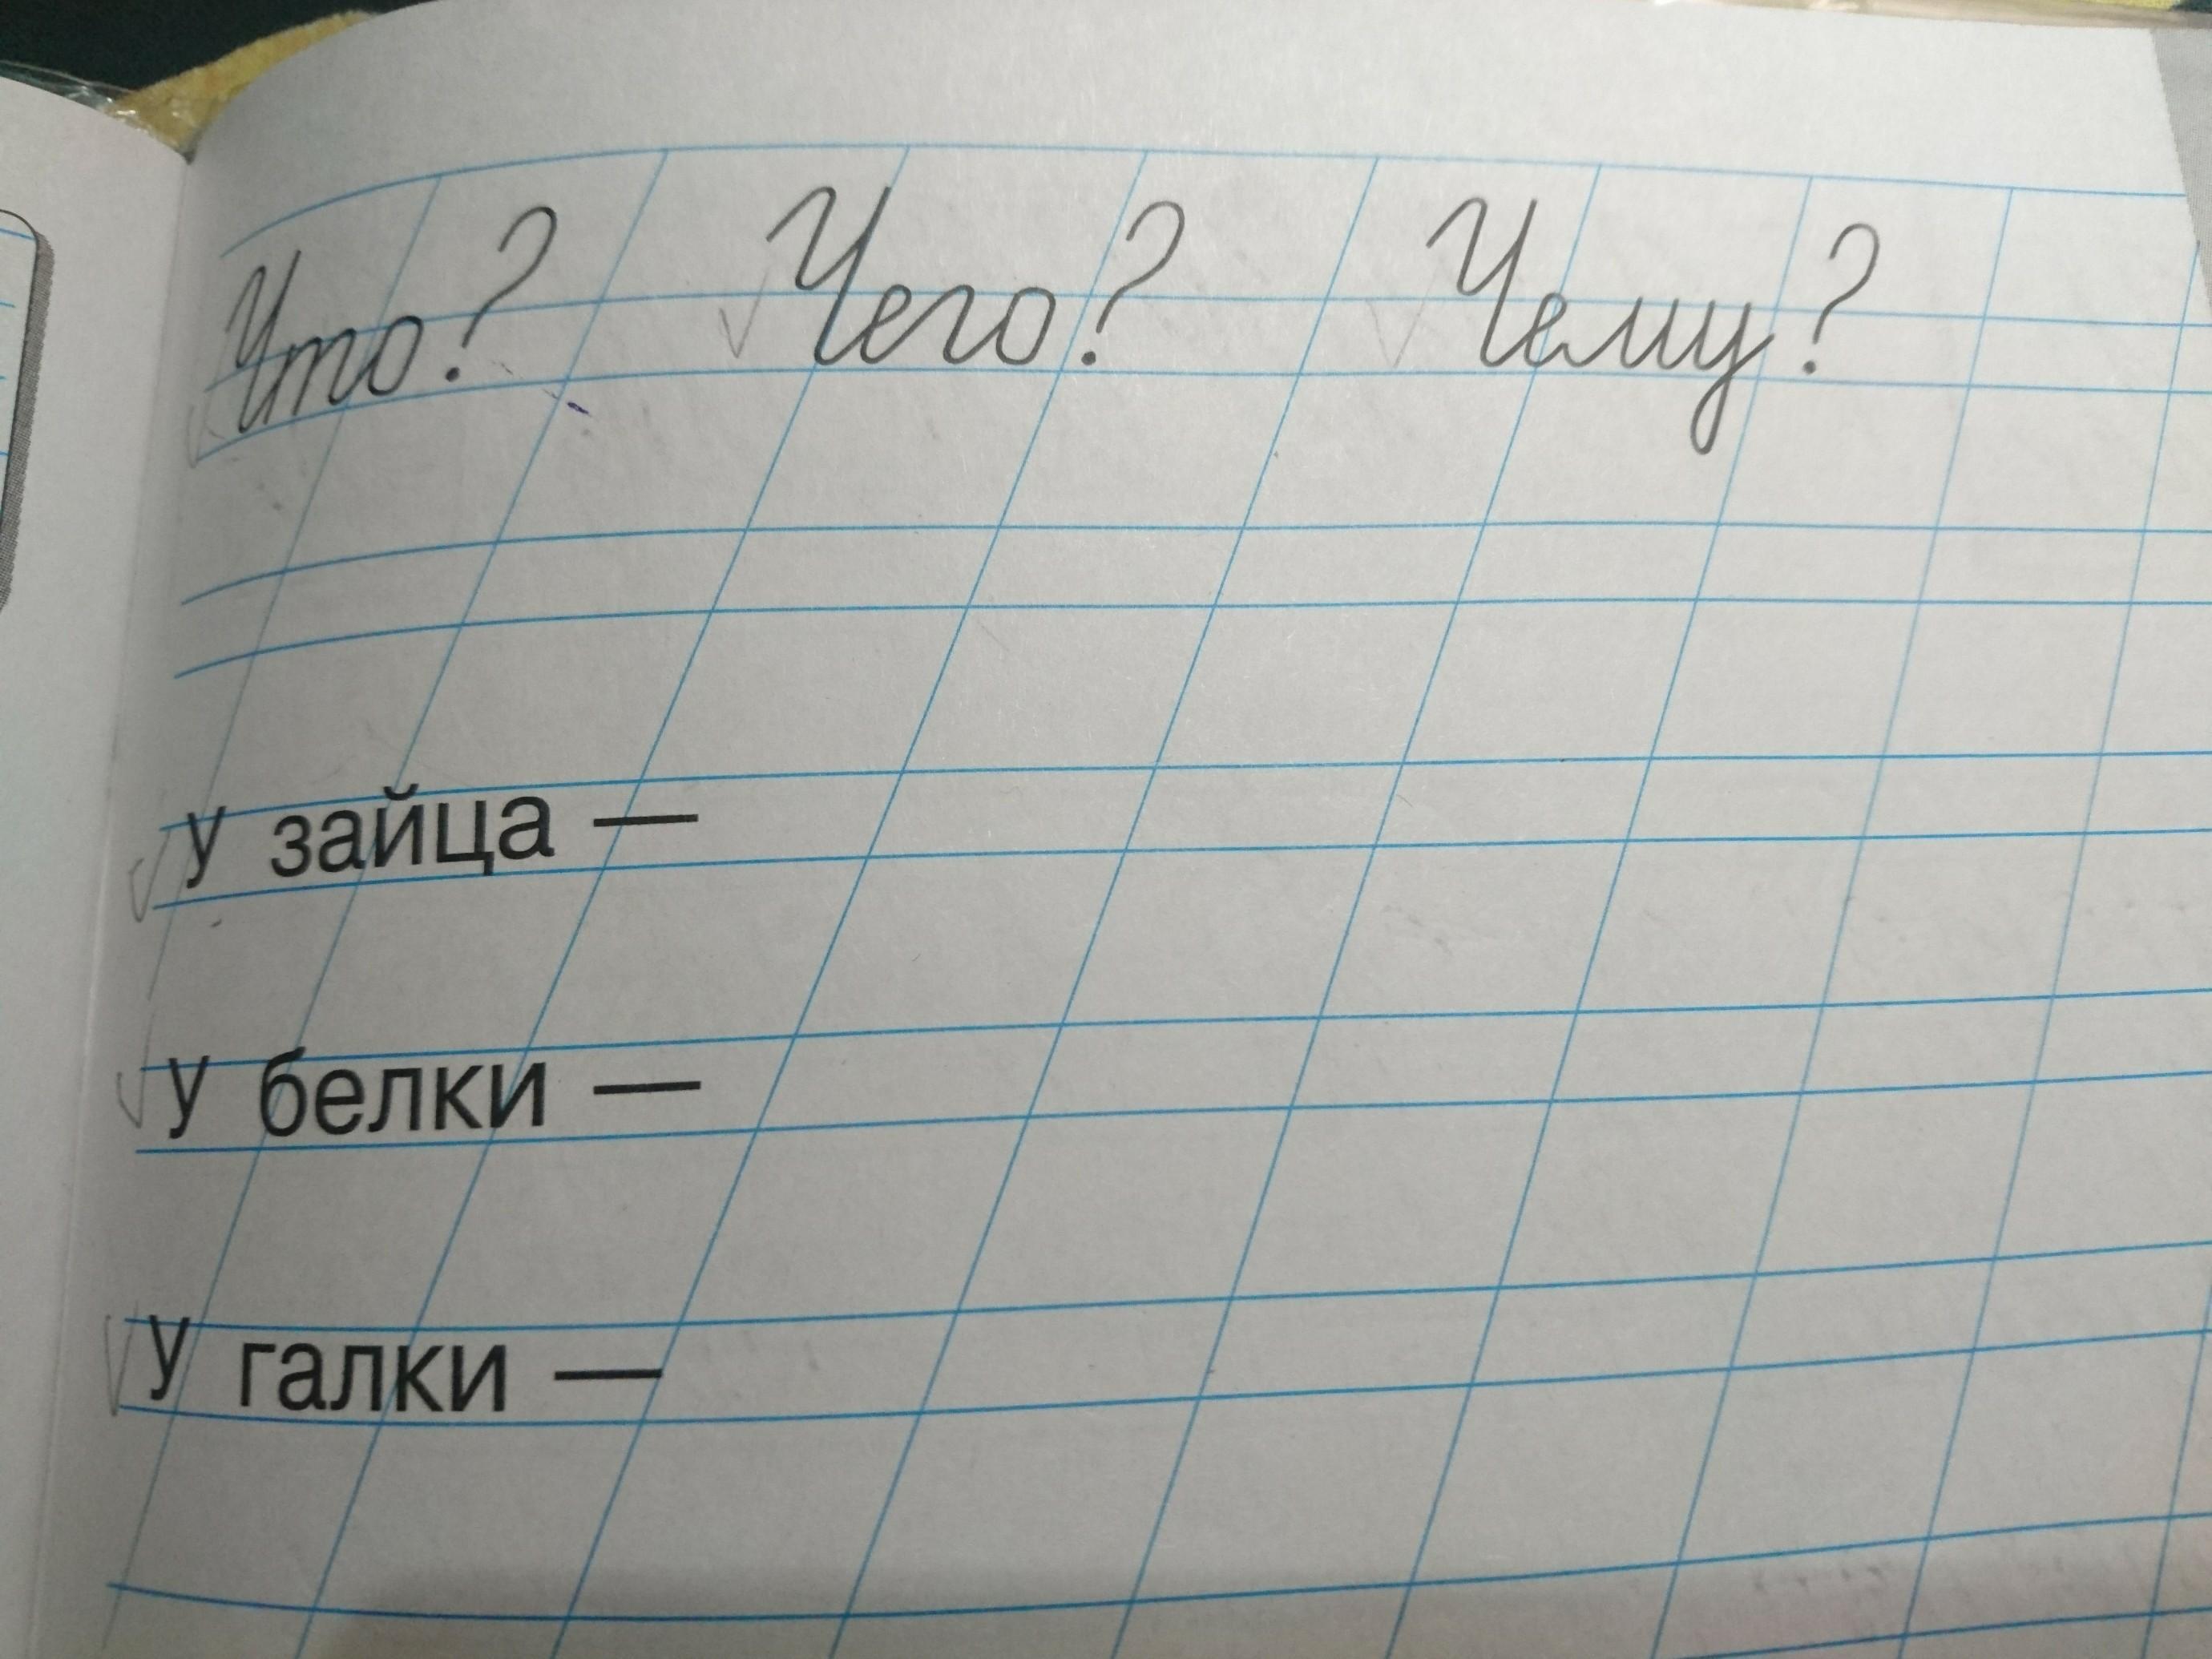 Что? Чего? Чему?
у зайца —
у белки —
у галки —